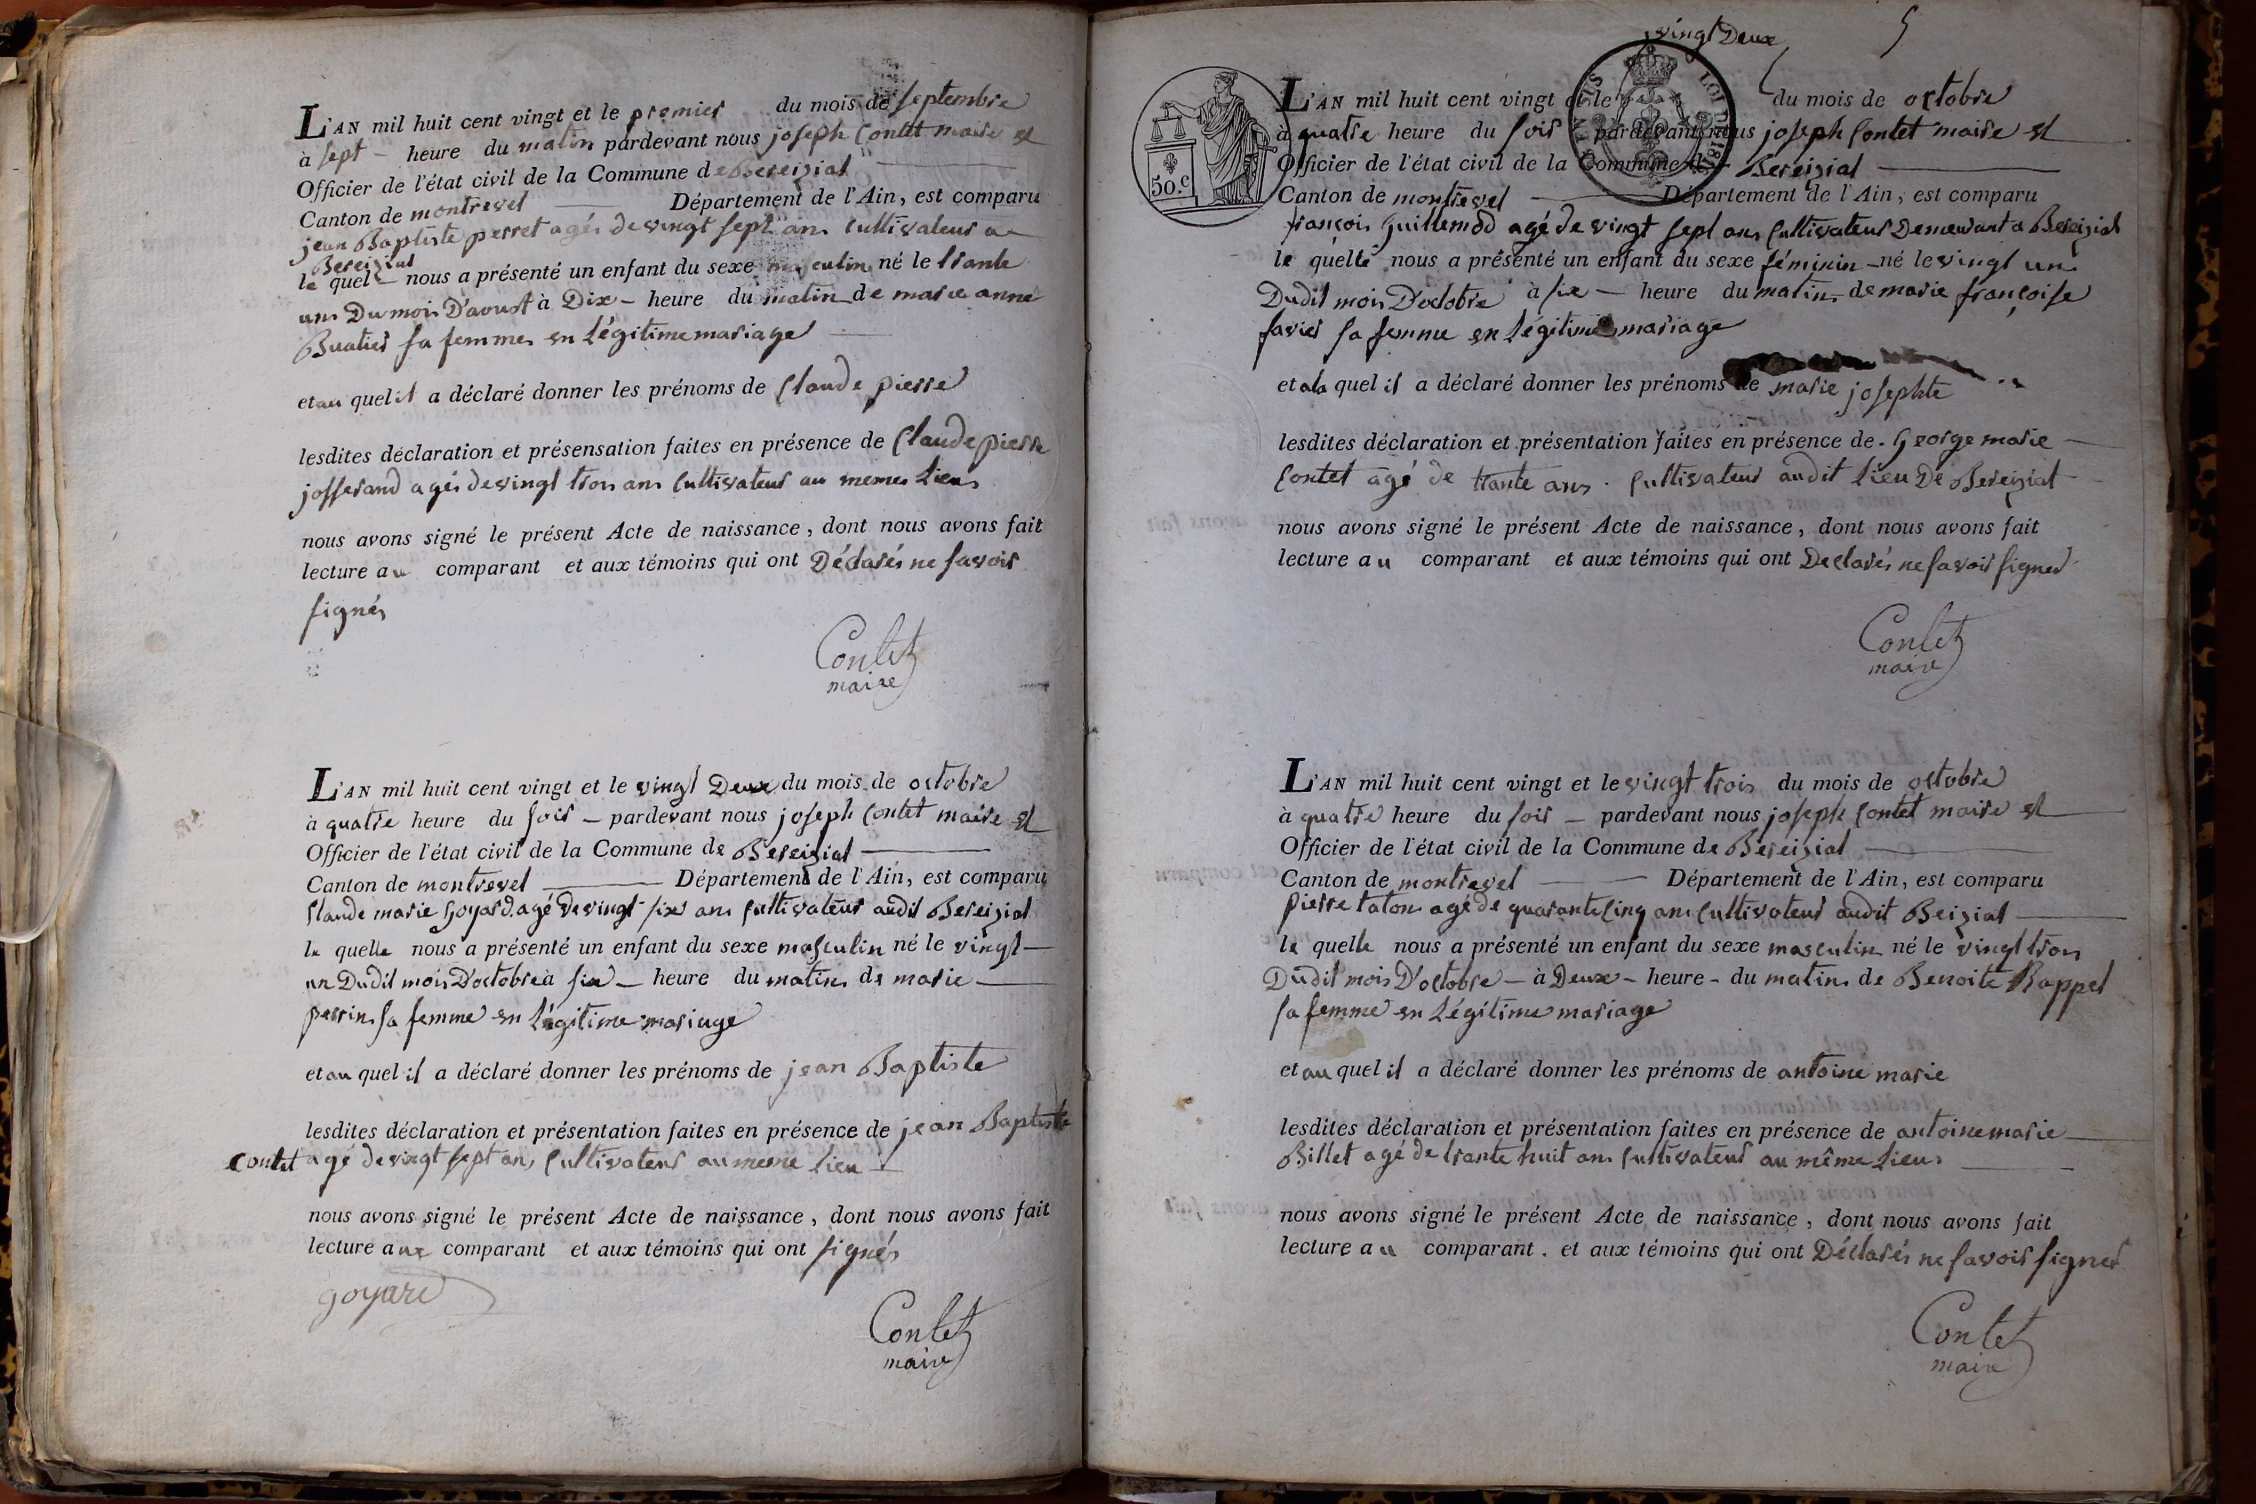 L'AN mil huit cent vingt et le premier du mois de septembre
à sept heure du matin pardevant nous joseph Contet maire et
Officier de l'état civil de la Commune de Bereiziat
Canton de montrevel Département de l'Ain, est comparu
jean Baptiste perret agés de vingt sept ans Cultivateur a
Bereiziat
le quel nous a présenté un enfant du sexe masculin né le trante
un Du mois D'aoust à Dix heure du matin de marie anne
Buatier sa femme en Légitime mariage
et au quel il a déclaré donner les prénoms de Claude pierre
lesdites déclaration et présensation faites en présence de Claude pierre
josserand agés de vingt trois ans Cultivateur au memes Lieu
nous avons signé le présent Acte de naissance, dont nous avons fait
lecture au comparant et aux témoins qui ont Déclarés ne savoir
signés
Contet
maire
L'AN mil huit cent vingt et le vingt Deux du mois de octobre
à quatre heure du soir pardevant nous joseph Contet maire et
Officier de l'état civil de la Commune de Bereiziat
Canton de montrevel Département de l'Ain, est comparu
Claude marie Goyard agé de vingt six ans Cultivateur audit Bereiziat
le quelle nous a présenté un enfant du sexe masculin né le vingt
un Dudit mois D'octobre à six heure du matin de marie
perrin sa femme en Légitime mariage
et au quel il a déclaré donner les prénoms de jean Baptiste
lesdites déclaration et présentation faites en présence de jean Baptiste
Contet agé de vingt sept ans Cultivateur au meme Lieu
nous avons signé le présent Acte de naissance, dont nous avons fait
lecture aux comparant et aux témoins qui ont signés
goyard
Contet
maire
vingt Deux 5
L'AN mil huit cent vingt et le du mois de octobre
à quatre heure du soir pardevant nous joseph Contet maire et
Officier de l'état civil de la Commune de Bereiziat
50.c
Canton de montrevel Département de l'Ain, est comparu
françois Guillemod agé de vingt sept ans Cultivateur Demeurant a Bereiziat
le quelle nous a présenté un enfant du sexe féminin né le vingt un
Dudit mois D'octobre à six heure du matin de marie françoise
favier sa femme en Légitime mariage
et ala quel il a déclaré donner les prénoms de marie josephte
lesdites déclaration et présentation faites en présence de George marie
Contet agé de trante ans Cultivateur audit Lieu De Bereiziat
nous avons signé le présent Acte de naissance, dont nous avons fait
lecture au comparant et aux témoins qui ont Declarés ne savoir signer
Contet
maire
L'AN mil huit cent vingt et le vingt trois du mois de octobre
à quatre heure du soir pardevant nous joseph Contet maire et
Officier de l'état civil de la Commune de Bereiziat
Canton de montrevel Département de l'Ain, est comparu
pierre taton agé de quarante Cinq ans Cultivateur audit Beiziat
le quelle nous a présenté un enfant du sexe masculin né le vingt trois
Dudit mois D'octobre à Deux heure du matin de Benoite Rappet
sa femme en Légitime mariage
et au quel il a déclaré donner les prénoms de antoine marie
lesdites déclaration et présentation faites en présence de antoine marie
Billet agé de trante huit ans Cultivateur au même Lieu
nous avons signé le présent Acte de naissance, dont nous avons fait
lecture au comparant. et aux témoins qui ont Déclarés ne savoir signer
Contet
maire